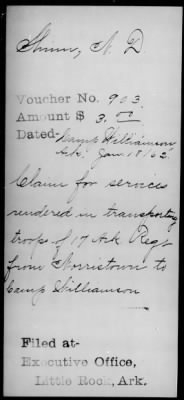 Shinn, N. D.
Voucher No. 903.
Amount $ 3.00
Dated- Camp Williamson
Ark. Jan. 18/62.
Claim for services
rendered in transporting
troops of 17 Ark Regt
from Norristown to
Camp Williamson
Filed at-
Executive Office,
Little Rock, Ark.